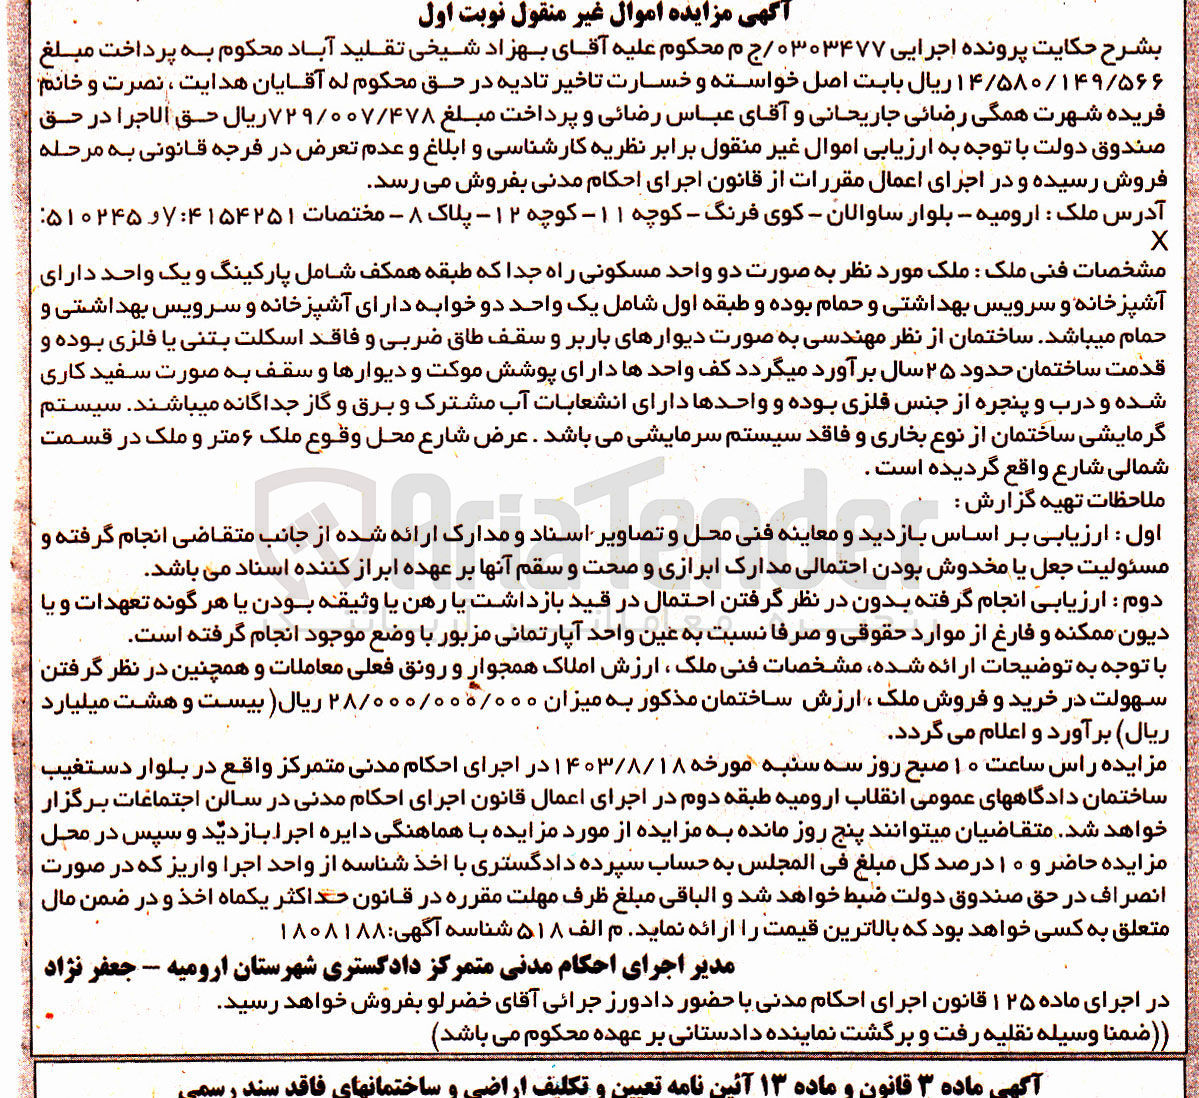 آگهی مزایده اموال غیر منقول نوبت اول
بشرح حکایت پرونده اجرایی ۰۳۰۳۴۷۷/ج م محکوم علیه آقای بهزاد شیخی تقلید آباد محکوم به پرداخت مبلغ
۱۴/۵۸۰/۱۴۹/۵۶۶ ریال بابت اصل خواسته و خسارت تاخیر تادیه در حق محکوم له آقایان هدایت ، نصرت و خانم
فریده شهرت همگی رضائی جاریحانی و آقای عباس رضائی و پرداخت مبلغ ۷۲۹/۰۰۷/۴۷۸ریال حق الاجرا در حق
صندوق دولت با توجه به ارزیابی اموال غیر منقول برابر نظریه کارشناسی و ابلاغ و عدم تعرض در فرجه قانونی به مرحله
فروش رسیده و در اجرای اعمال مقررات از قانون اجرای احکام مدنی بفروش می رسد.
آدرس ملک : ارومیه - بلوار ساوالان - کوی فرنگ - کوچه ۱۱ - کوچه ۱۲ - پلاک ۸ - مختصات ۴۱۵۴۲۵۱:y و ۵۱۰۲۴۵:
X
مشخصات فنی ملک : ملک مورد نظر به صورت دو واحد مسکونی راه جدا که طبقه همکف شامل پارکینگ و یک واحد دارای
آشپزخانه و سرویس بهداشتی و حمام بوده و طبقه اول شامل یک واحد دو خوابه دارای آشپزخانه و سرویس بهداشتی و
حمام میباشد. ساختمان از نظر مهندسی به صورت دیوارهای باربر و سقف طاق ضربی و فاقد اسکلت بتنی یا فلزی بوده و
قدمت ساختمان حدود ۲۵سال برآورد میگردد کف واحد ها دارای پوشش موکت و دیوارها و سقف به صورت سفید کاری
شده و درب و پنجره از جنس فلزی بوده و واحدها دارای انشعابات آب مشترک و برق و گاز جداگانه میباشند. سیستم
گرمایشی ساختمان از نوع بخاری و فاقد سیستم سرمایشی می باشد . عرض شارع محل وقوع ملک ۶متر و ملک در قسمت
شمالی شارع واقع گردیده است .
ملاحظات تهیه گزارش :
اول : ارزیابی بر اساس بازدید و معاینه فنی محل و تصاویر اسناد و مدارک ارائه شده از جانب متقاضی انجام گرفته و
مسئولیت جعل یا مخدوش بودن احتمالی مدارک ابرازی و صحت و سقم آنها بر عهده ابراز کننده اسناد می باشد.
دوم : ارزیابی انجام گرفته بدون در نظر گرفتن احتمال در قید بازداشت یا رهن یا وثیقه بودن یا هر گونه تعهدات و یا
دیون ممکنه و فارغ از موارد حقوقی و صرفا نسبت به عین واحد آپارتمانی مزبور با وضع موجود انجام گرفته است.
با توجه به توضیحات ارائه شده، مشخصات فنی ملک ، ارزش املاک همجوار و رونق فعلی معاملات و همچنین در نظر گرفتن
سهولت در خرید و فروش ملک ، ارزش ساختمان مذکور به میزان ۲۸/۰۰۰/۰۰۰/۰۰۰ ریال( بیست و هشت میلیارد
ریال) برآورد و اعلام می گردد.
مزایده راس ساعت ۱۰صبح روز سه سنبه مورخه ۱۴۰۳/۸/۱۸در اجرای احکام مدنی متمرکز واقع در بلوار دستغیب
ساختمان دادگاههای عمومی انقلاب ارومیه طبقه دوم در اجرای اعمال قانون اجرای احکام مدنی در سالن اجتماعات برگزار
خواهد شد. متقاضیان میتوانند پنج روز مانده به مزایده از مورد مزایده با هماهنگی دایره اجرا بازدید و سپس در محل
مزایده حاضر و ۱۰درصد کل مبلغ فی المجلس به حساب سپرده دادگستری با اخذ شناسه از واحد اجرا واریز که در صورت
انصراف در حق صندوق دولت ضبط خواهد شد و الباقی مبلغ ظرف مهلت مقرره در قانون حداکثر یکماه اخذ و در ضمن مال
متعلق به کسی خواهد بود که بالاترین قیمت را ارائه نماید. م الف ۵۱۸ شناسه آگهی:۱۸۰۸۱۸۸
مدیر اجرای احکام مدنی متمرکز دادگستری شهرستان ارومیه - جعفر نژاد
در اجرای ماده ۱۲۵قانون اجرای احکام مدنی با حضور دادورز جرائی آقای خضرلو بفروش خواهد رسید.
((ضمنا وسیله نقلیه رفت و برگشت نماینده دادستانی بر عهده محکوم می باشد)
آگهی ماده ۳ قانون و ماده ۱۳ آئین نامه تعیین و تکلیف اراضی و ساختمانهای فاقد سند رسمی
AriaTender